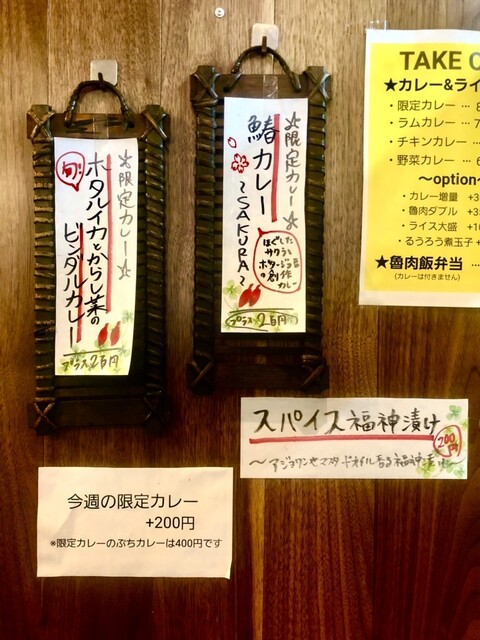 ☆限定カレー☆
旬!
ホタルイカとからし菜の
ビンダルカレー
プラス2百円
☆限定カレー☆
鰆カレー
〜SAKURA〜
ほぐした
サクラと
ホタージュ
の創作
カレー
プラス2百円
TAKE O
★カレー&ライ
・限定カレー … 8
・ラムカレー … 7
・チキンカレー …
・野菜カレー … 6
〜option〜
・カレー増量 +3
・魯肉ダブル +3
・ライス大盛 +10
・るうろう煮玉子 +
★魯肉飯弁当 …
(カレーは付きません)
スパイス福神漬け
200円
〜アジョワンやマスタードオイル香る福神漬け〜
今週の限定カレー
+200円
※限定カレーのぷちカレーは400円です